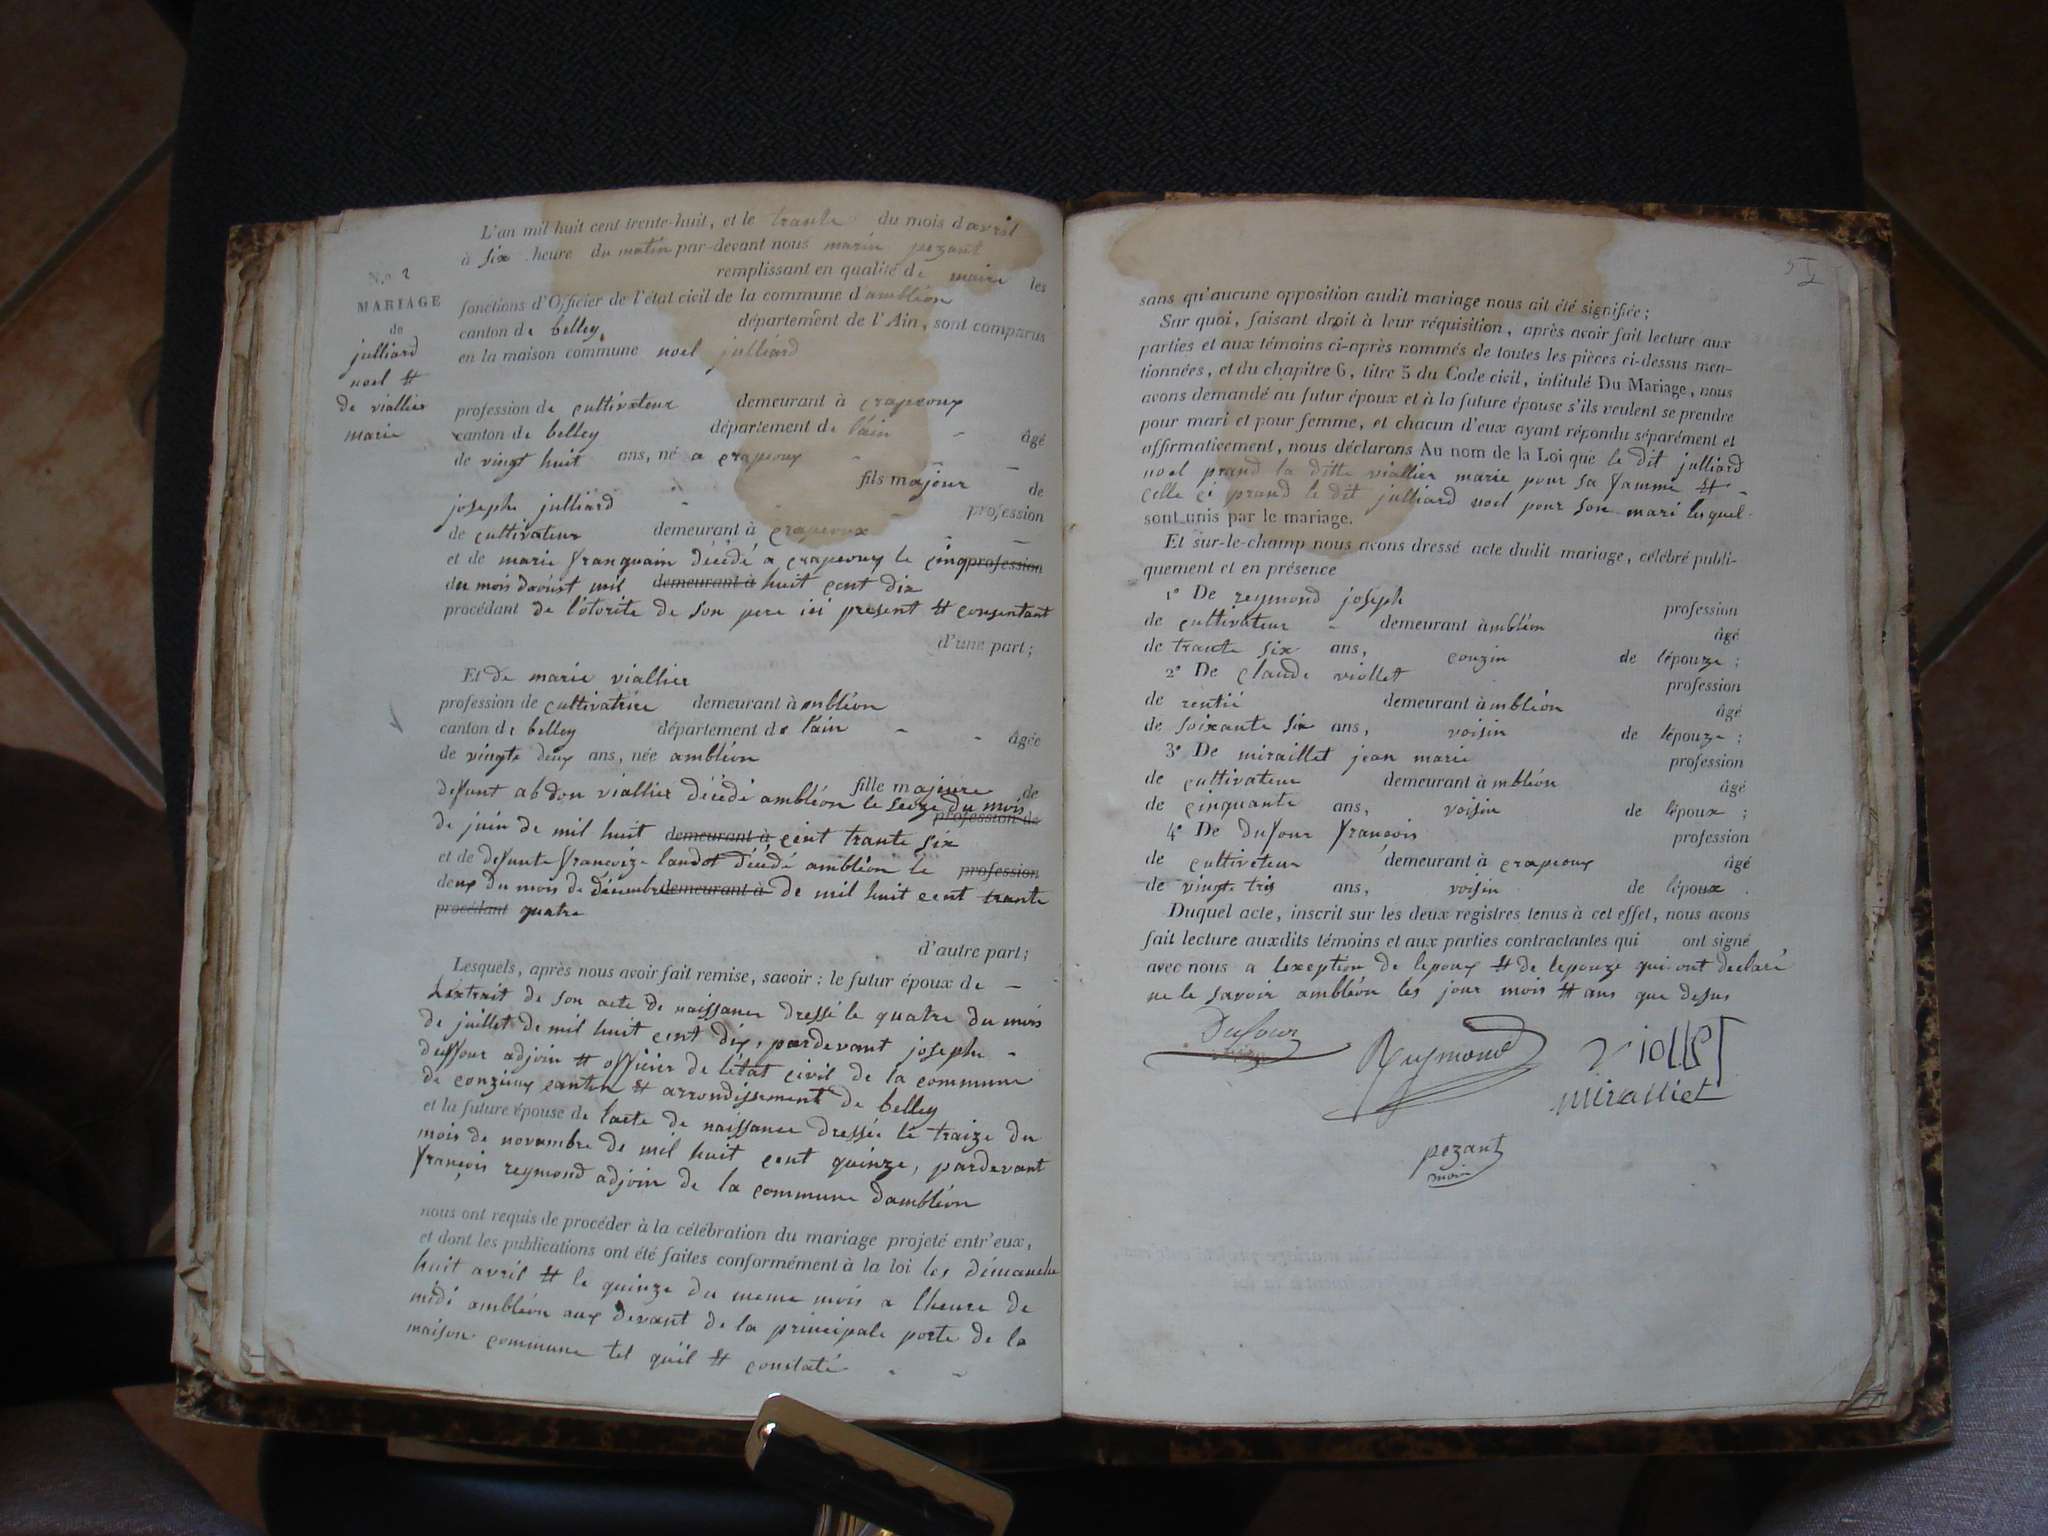 L'an mil huit cent trente-huit, et le trante du mois d avril
à six heure du matin par-devant nous marin pezant
remplissant en qualité de maire les
fonctions d'Officier de l'état civil de la commune d ambléon
canton de belley département de l'Ain, sont comparus
en la maison commune noel julliard
N.o 2
MARIAGE
de
julliard
noel #
de viallier
marie
profession de cultivateur demeurant à crapeoux
canton de belley département de lain âgé
de vingt huit ans, né a crapeoux
fils majeur de
joseph julliard profession
de cultivateur demeurant à crapeoux
et de marie franquain décédé a crapeoux le cinq profession
du mois daoust mil demeurant à huit cent dix
procédant de lotorite de son pere ici present # consentant
d'une part;
Et de marie viallier
profession de cultivatrice demeurant à mbléon
canton de belley département de lain âgée
de vingte deux ans, née ambléon
fille majeure de
defunt abdon viallier décédé ambléon le seize du mois profession de
de juin de mil huit demeurant à cent trante six
et de defunte francoize landot décédé ambléon le profession
deux du mois de décembre demeurant à de mil huit cent trante
procédant quatre
d'autre part;
Lesquels, après nous avoir fait remise, savoir: le futur époux de
Lextrait de son acte de naissance dressé le quatre du mois
de juillet de mil huit cent dix, pardevant joseph
duffour adjoin # officier de létat civil de la commune
de conzieux canton # arrondissement de belley
et la future épouse de lacte de naissance dressée le traize du
mois de novambre de mil huit cent quinze, pardevant
françois reymond adjoin de la commune dambléon
nous ont requis de procéder à la célébration du mariage projeté entr'eux,
et dont les publications ont été faites conformément à la loi les dimanche
huit avril # le quinze du meme mois a lheure de
midi ambléon aux devant de la principale porte de la
maison commune tel quil # constaté
sans qu'aucune opposition audit mariage nous ait été signifiée;
Sur quoi, faisant droit à leur réquisition, après avoir fait lecture aux
parties et aux témoins ci-après nommés de toutes les pièces ci-dessus men-
tionnées, et du chapitre 6, titre 5 du Code civil, intitulé Du Mariage, nous
avons demandé au futur époux et à la future épouse s'ils veulent se prendre
pour mari et pour femme, et chacun d'eux ayant répondu séparément et
affirmativement, nous déclarons Au nom de la Loi que le dit julliard
noel prand la ditte viallier marie pour sa famme #
celle ci prand le dit julliard noel pour son mari lesquel
sont unis par le mariage.
Et sur-le-champ nous avons dressé acte dudit mariage, célébré publi-
quement et en présence
1º De reymond joseph profession
de cultivateur demeurant àmbléon âgé
de trante six ans, couzin de lépouze;
2º De claude viollet profession
de rentié demeurant àmbléon âgé
de soixante six ans, voisin de lépouze;
3º De miraillet jean marie profession
de cultivateur demeurant à mbléon âgé
de cinquante ans, voisin de lépoux;
4º De dufour françois profession
de cultiveteur demeurant à crapeoux âgé
de vingte tris ans, voisin de lépoux.
Duquel acte, inscrit sur les deux registres tenus à cet effet, nous avons
fait lecture auxdits témoins et aux parties contractantes qui ont signé
avec nous a lexeption de lepoux # de lepouze qui ont declaré
ne le savoir ambléon les jour mois # ans que desus
Dufour
Reymond
Viollet
miralliet
pezant